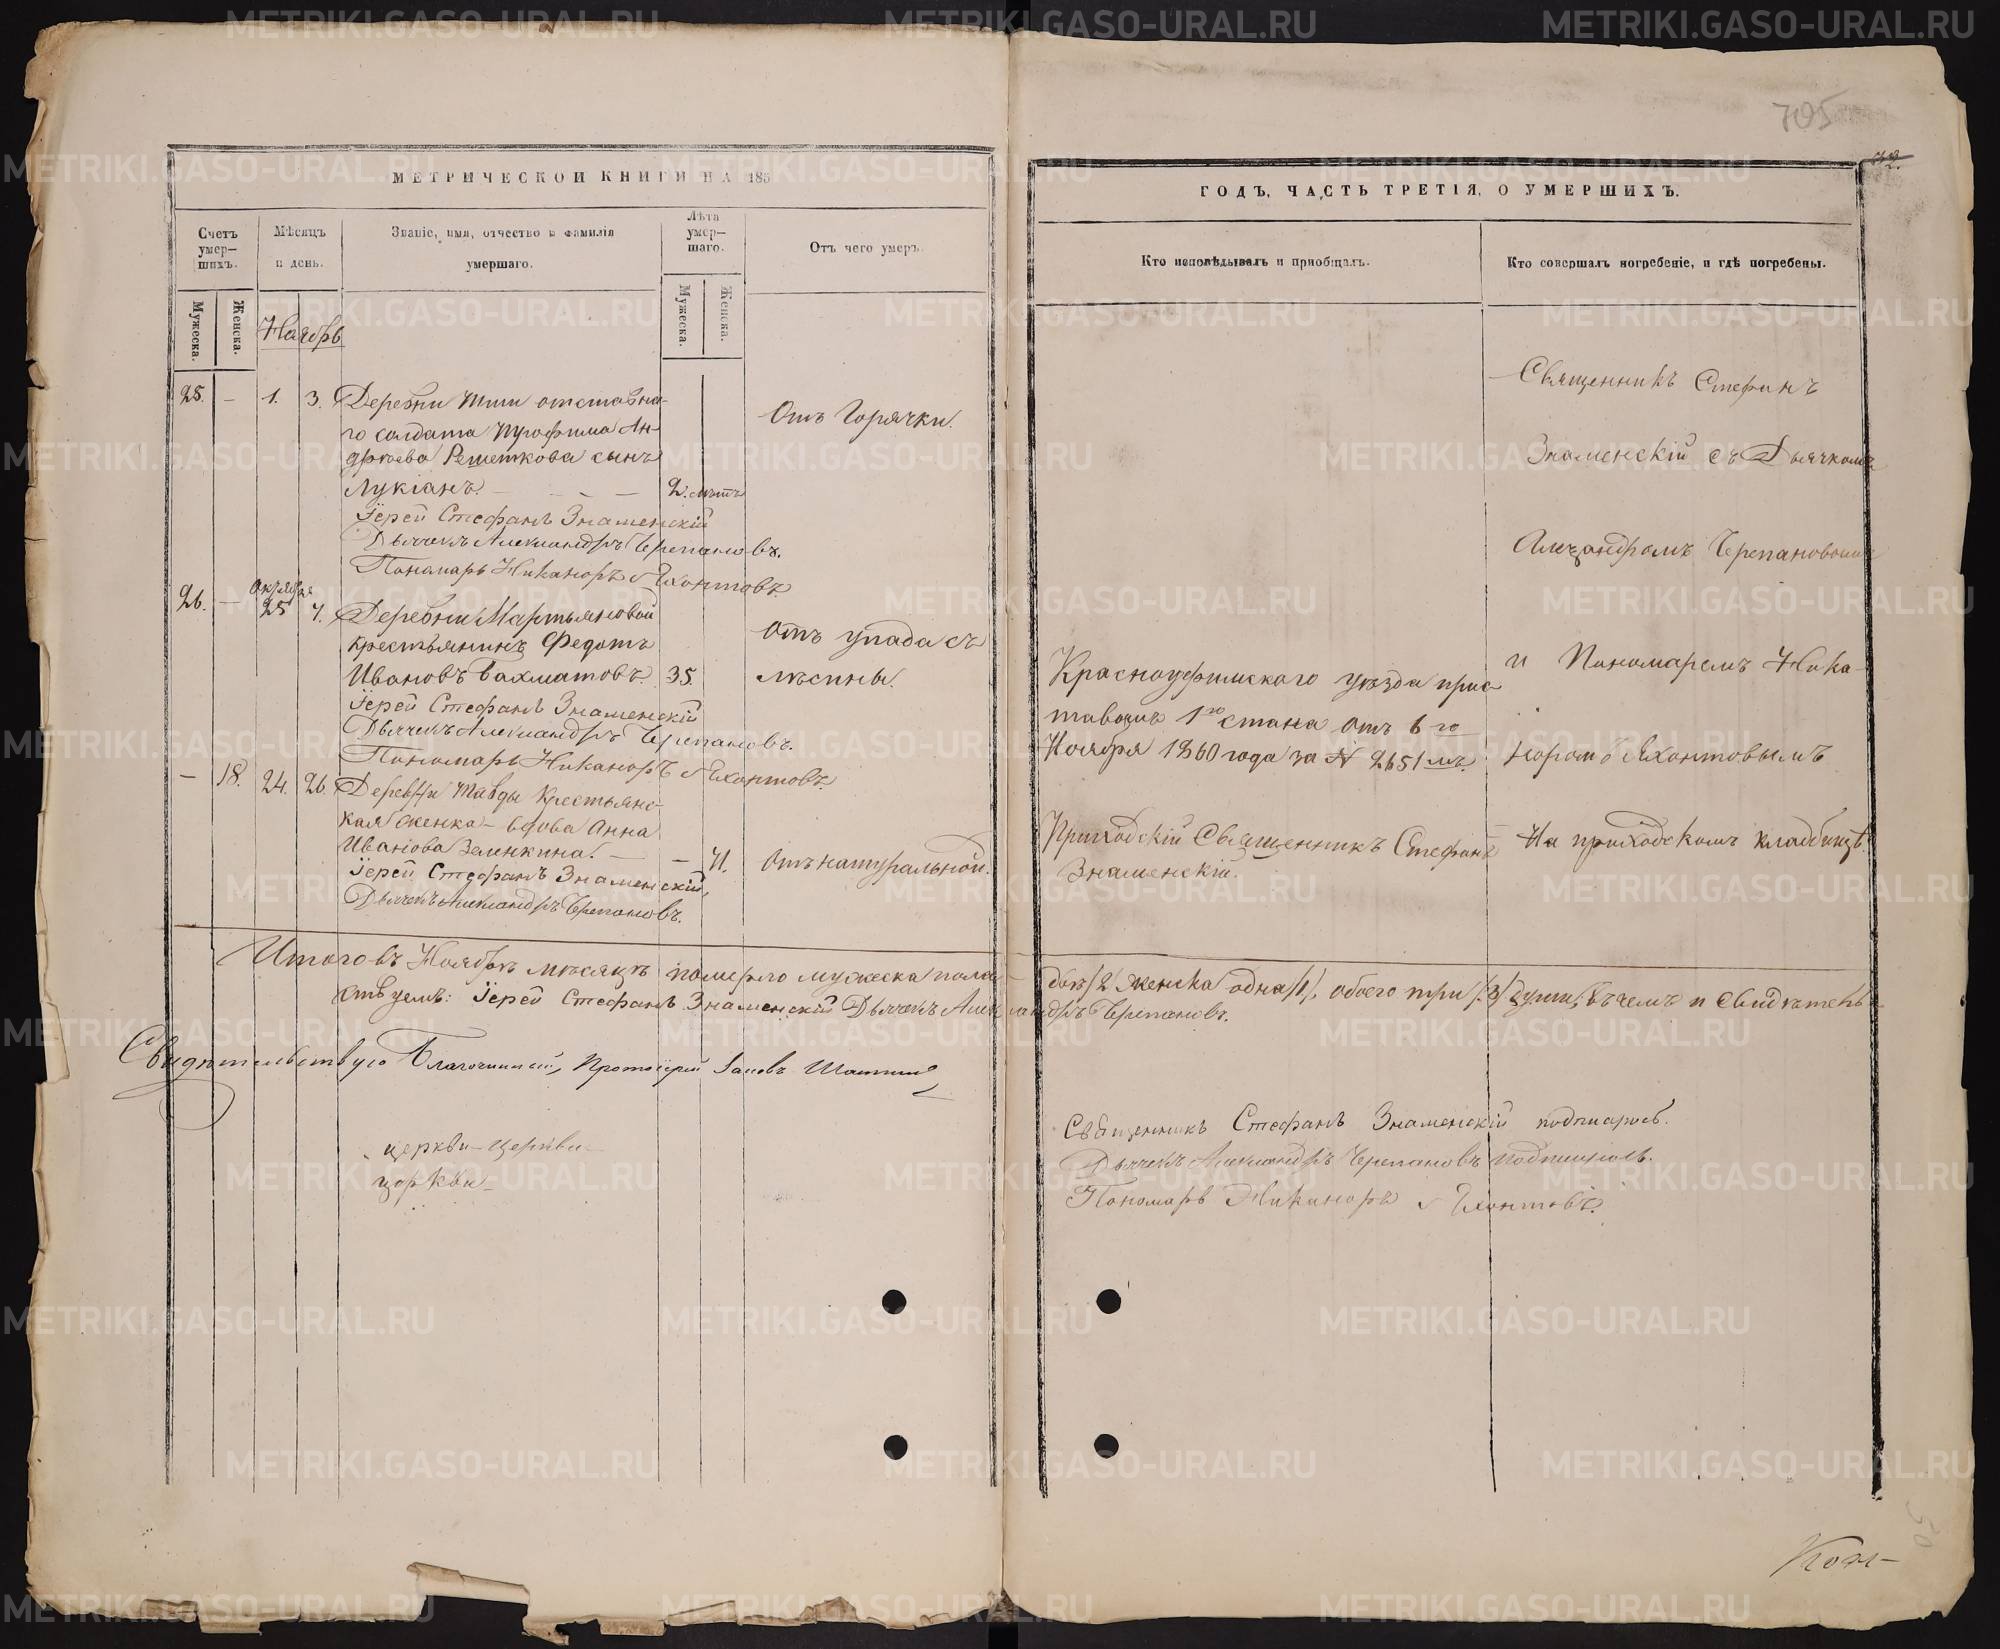 705
МЕТРИЧЕСКОЙ КНИГИ НА 185
Счетъ умер-
шихъ.
Мѣсяцъ
и день.
Званіе, имя, отчество и фамилія
умершаго.
Лѣта
умер-
шаго.
Отъ чего умеръ
Мужеска.
Женска.
Мужеска.
Женска.
Ноябрь
25. — 1. 3. Деревни Тиши отставна-
го солдата Трофима Ан-
дреева Решеткова сынъ
Лукіанъ. — — — 2. лѣтъ
Отъ Горячки.
Іерей Стефанъ Знаменскій
Дьячекъ Александръ Черепановъ.
Пономарь Никаноръ Яхонтовъ.
26. — Октября
25 7. Деревни Мартьяновой
крестьянинъ Федотъ
Ивановъ Бахматовъ. 35.
Отъ упада съ
лѣсины.
Іерей Стефанъ Знаменскій
Дьячекъ Александръ Черепановъ.
Пономарь Никаноръ Яхонтовъ.
— 18. 24. 26. Деревни Тавды Крестьянс-
кая женка - вдова Анна
Иванова Зеленкина. — — 71. Отъ натуральной.
Іерей Стефанъ Знаменскій,
Дьячекъ Александръ Черепановъ.
Итого въ Ноябрѣ мѣсяцѣ померло мужеска пола
Іерей Стефанъ Знаменскій Дьячекъ Александръ Черепановъ.
Свидѣтельствую Благочинный, Протоіерей
церкви - церкви -
церкви -
ГОДЪ, ЧАСТЬ ТРЕТІЯ, О УМЕРШИХЪ.
Кто исповѣдывалъ и пріобщалъ.
Кто совершалъ погребеніе, и гдѣ погребены.
Священникъ Стефанъ
Знаменскій съ Дьячкомъ
Александромъ Черепановымъ
и Пономаремъ Ника-
норомъ Яхонтовымъ
На приходскомъ кладбищѣ.
Красноуфимскаго уѣзда прис
тавомъ 1го стана отъ 6го
Ноября 1860 года за № 2651мъ.
Приходскій Священникъ Стефанъ
Знаменскій.
двѣ /2/ женска одна /1/, обоего три /3/ души, въ чемъ и свидѣтель-
Священникъ Стефанъ Знаменскій подписуюсь.
Дьячекъ Александръ Черепановъ подписуюсь.
Пономарь Никаноръ Яхонтовъ.
METRIKI.GASO-URAL.RU